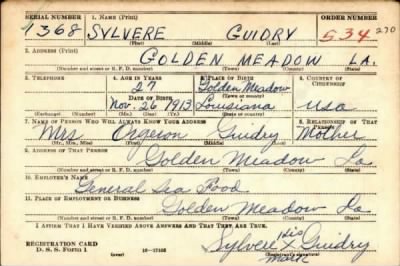 SERIAL NUMBER 1. NAME (Print) ORDER NUMBER
1368 SYLVERE GUIDRY 534 270
(First) (Middle) (Last)
2. ADDRESS (Print)
GOLDEN MEADOW LA.
(Number and street or R. F. D. number) (Town) (County) (State)
3. TELEPHONE 4. AGE IN YEARS 5. PLACE OF BIRTH 6. COUNTRY OF CITIZENSHIP
27 Golden Meadow
DATE OF BIRTH (Town or county)
Nov. 26 1913 Louisiana USA
(Exchange) (Number) (Mo.) (Day) (Yr.) (State or country)
7. NAME OF PERSON WHO WILL ALWAYS KNOW YOUR ADDRESS 8. RELATIONSHIP OF THAT PERSON
Mrs Orgeron Guidry Mother
(Mr., Mrs., Miss) (First) (Middle) (Last)
9. ADDRESS OF THAT PERSON
Golden Meadow La
(Number and street or R. F. D. number) (Town) (County) (State)
10. EMPLOYER'S NAME
General Sea Food
11. PLACE OF EMPLOYMENT OR BUSINESS
Golden Meadow La
(Number and street or R. F. D. number) (Town) (County) (State)
I AFFIRM THAT I HAVE VERIFIED ABOVE ANSWERS AND THAT THEY ARE TRUE.
REGISTRATION CARD
D. S. S. Form 1 (over) Sylvere His X Mark Guidry